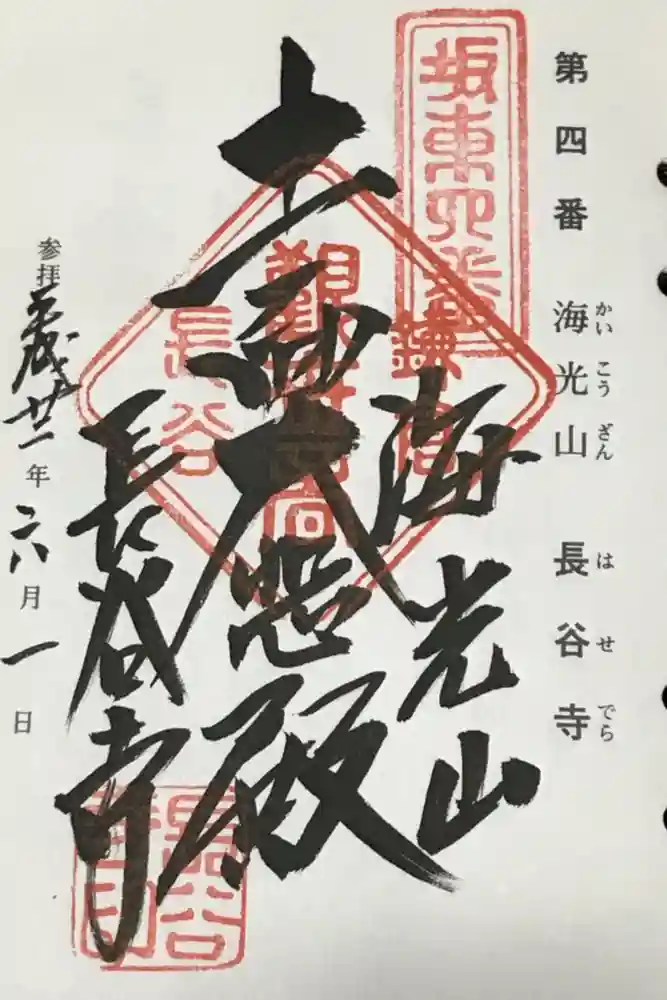 第四番 海光山 長谷寺
かいこうざん はせでら
坂東四番
海光山
十一面大悲殿
長谷寺
鎌倉
觀世音
長谷
長谷
寺印
参拝平成廿一年六月一日